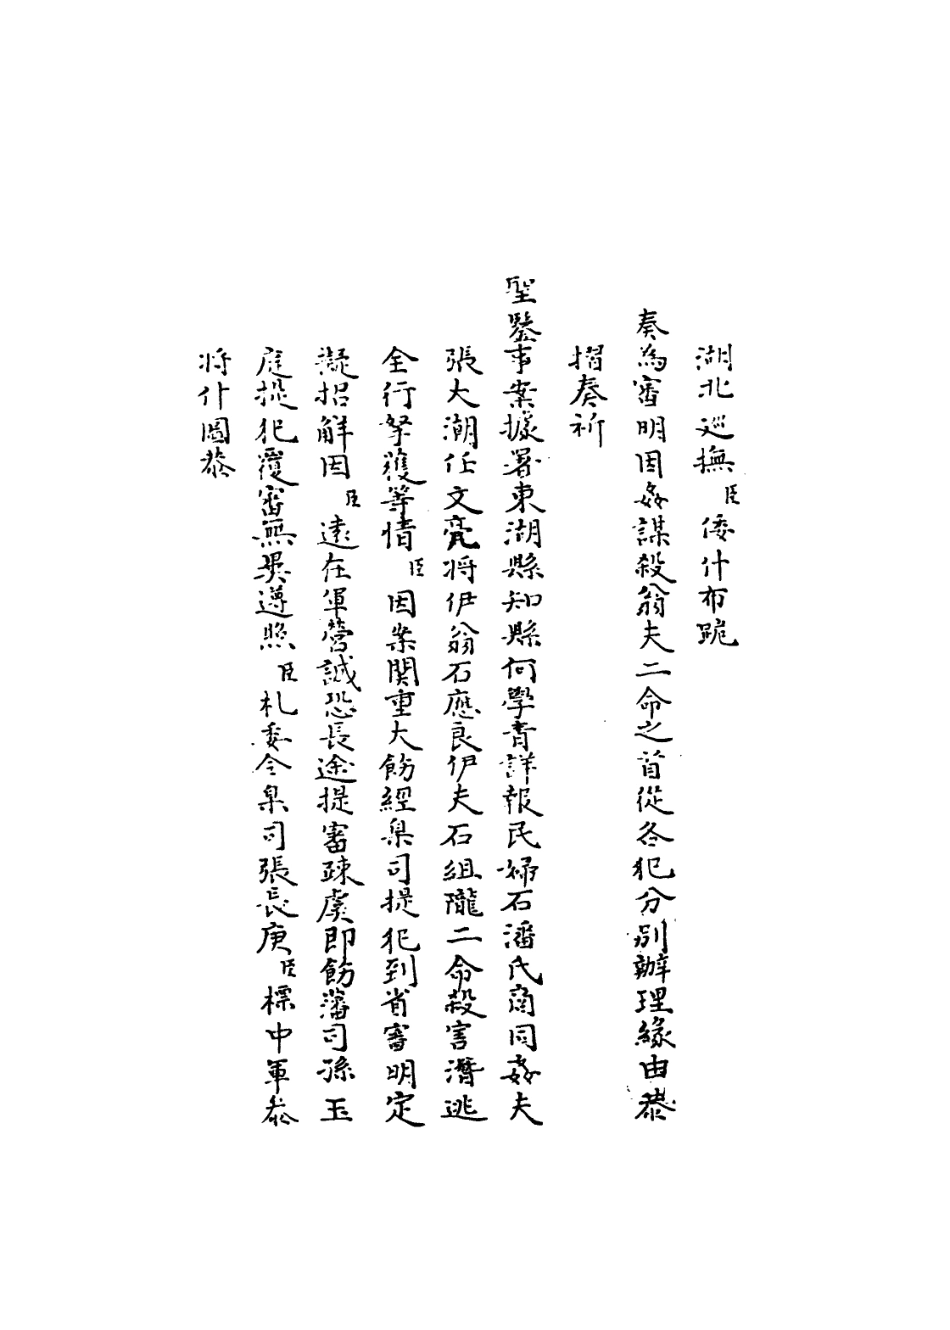 湖北巡撫臣倭什布跪
奏為審明因姦謀殺翁夫二命之首從各犯分別辦理緣由恭
摺奏祈
聖鑒事案據署東湖縣知縣何學青詳報民婦石潘氏商同姦夫
張大潮任文亮將伊翁石應良伊夫石組隴二命殺害潛逃
全行拏獲等情臣因案関重大飭經臬司提犯到省審明定
擬招解因臣遠在軍營誠恐長途提審疎虞即飭藩司孫玉
庭提犯覆審無異遵照臣札委令臬司張長庚臣標中軍叅
將什圖恭